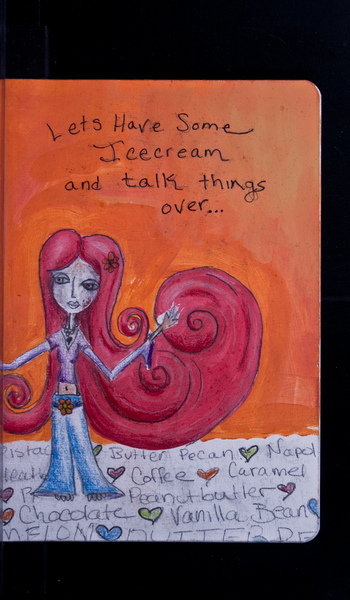 Lets Have Some
Icecream
and talk things
over...
Butter Pecan
Coffee Caramel
Peanutbutter
Chocolate Vanilla Bean